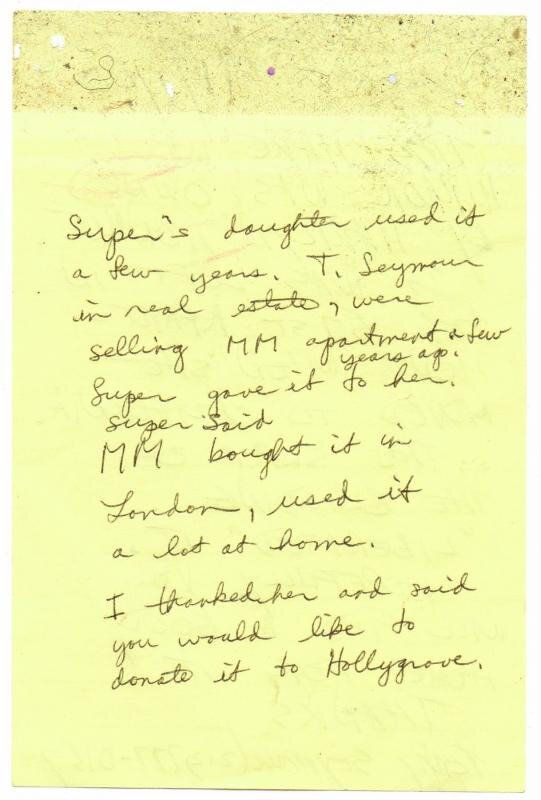 Super's daughter used it
a few years. T. Seymour
in real estate, were
selling MM apartment a few
years ago.
Super gave it to her.
super said
MM bought it in
London, used it
a lot at home.
I thanked her and said
you would like to
donate it to Hollygrove.